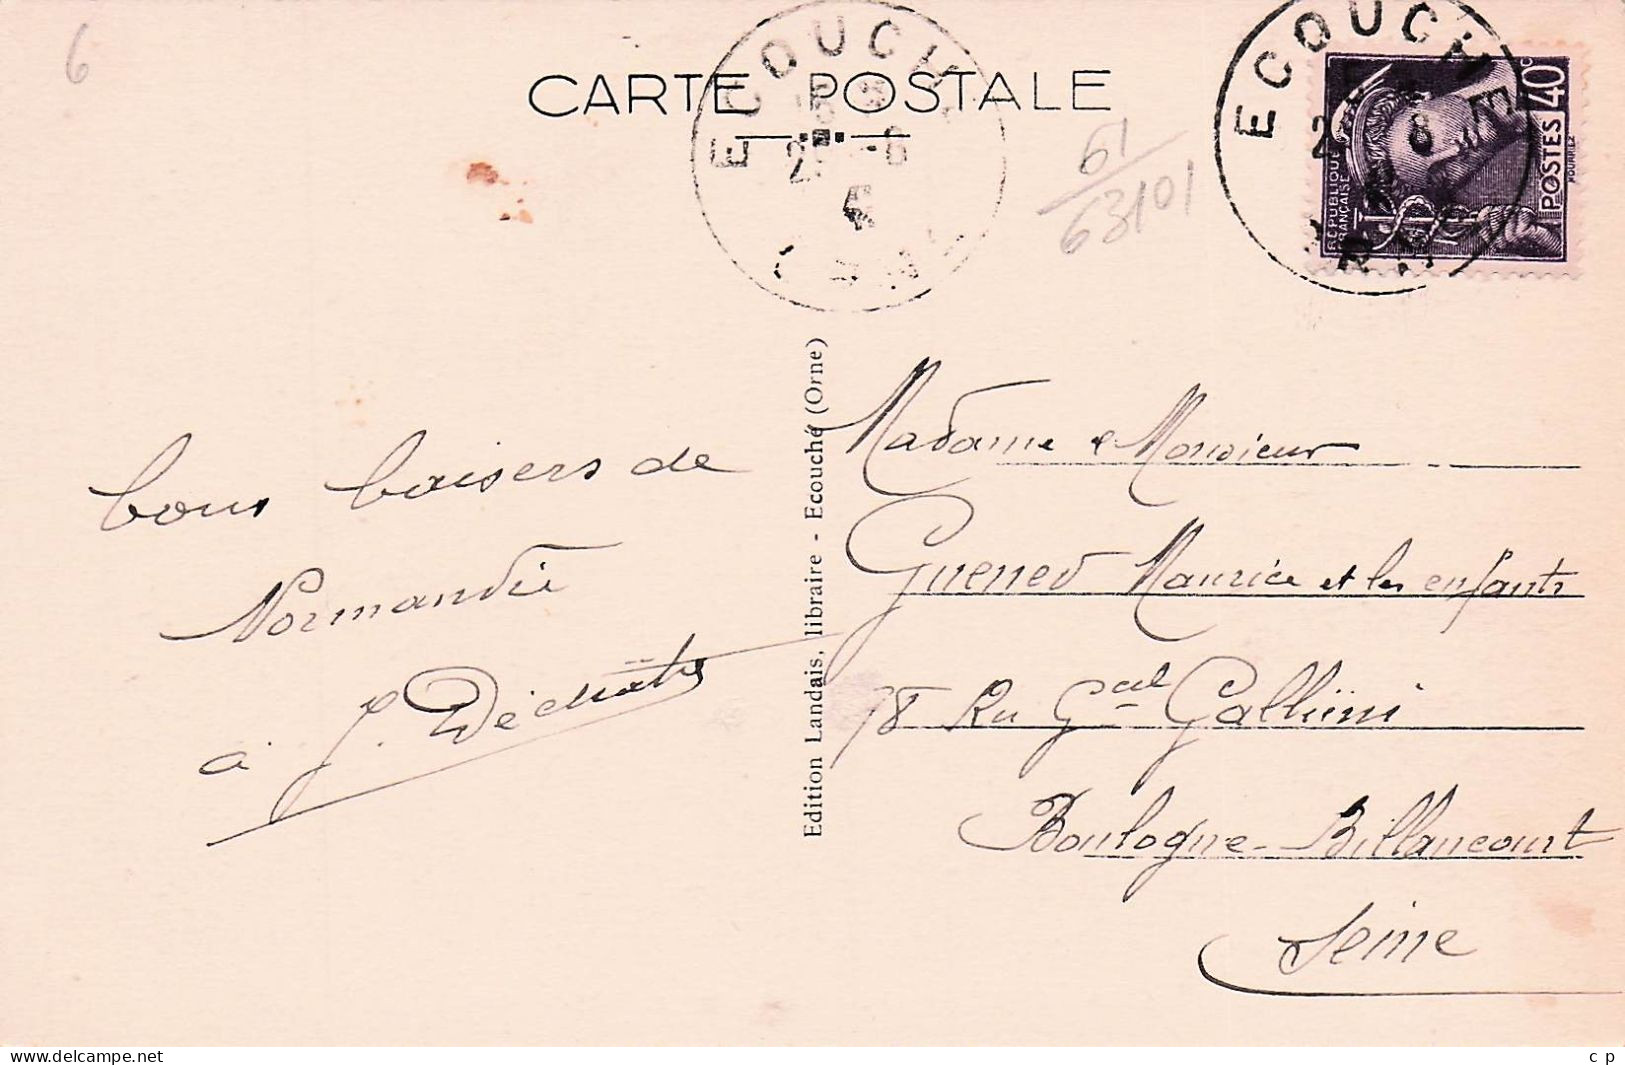 6
CARTE POSTALE
ECOUCHE
ECOUCHE
RÉPUBLIQUE
FRANÇAISE
POSTES 40c
61
63101
Edition Landais, libraire - Ecouché (Orne)
bons baisers de
Normandie
à
Madame e Monsieur
Guened Maurice et les enfants
78 Rue Gal Galliéni
Boulogne-Billancourt
Seine
www.delcampe.net
c p